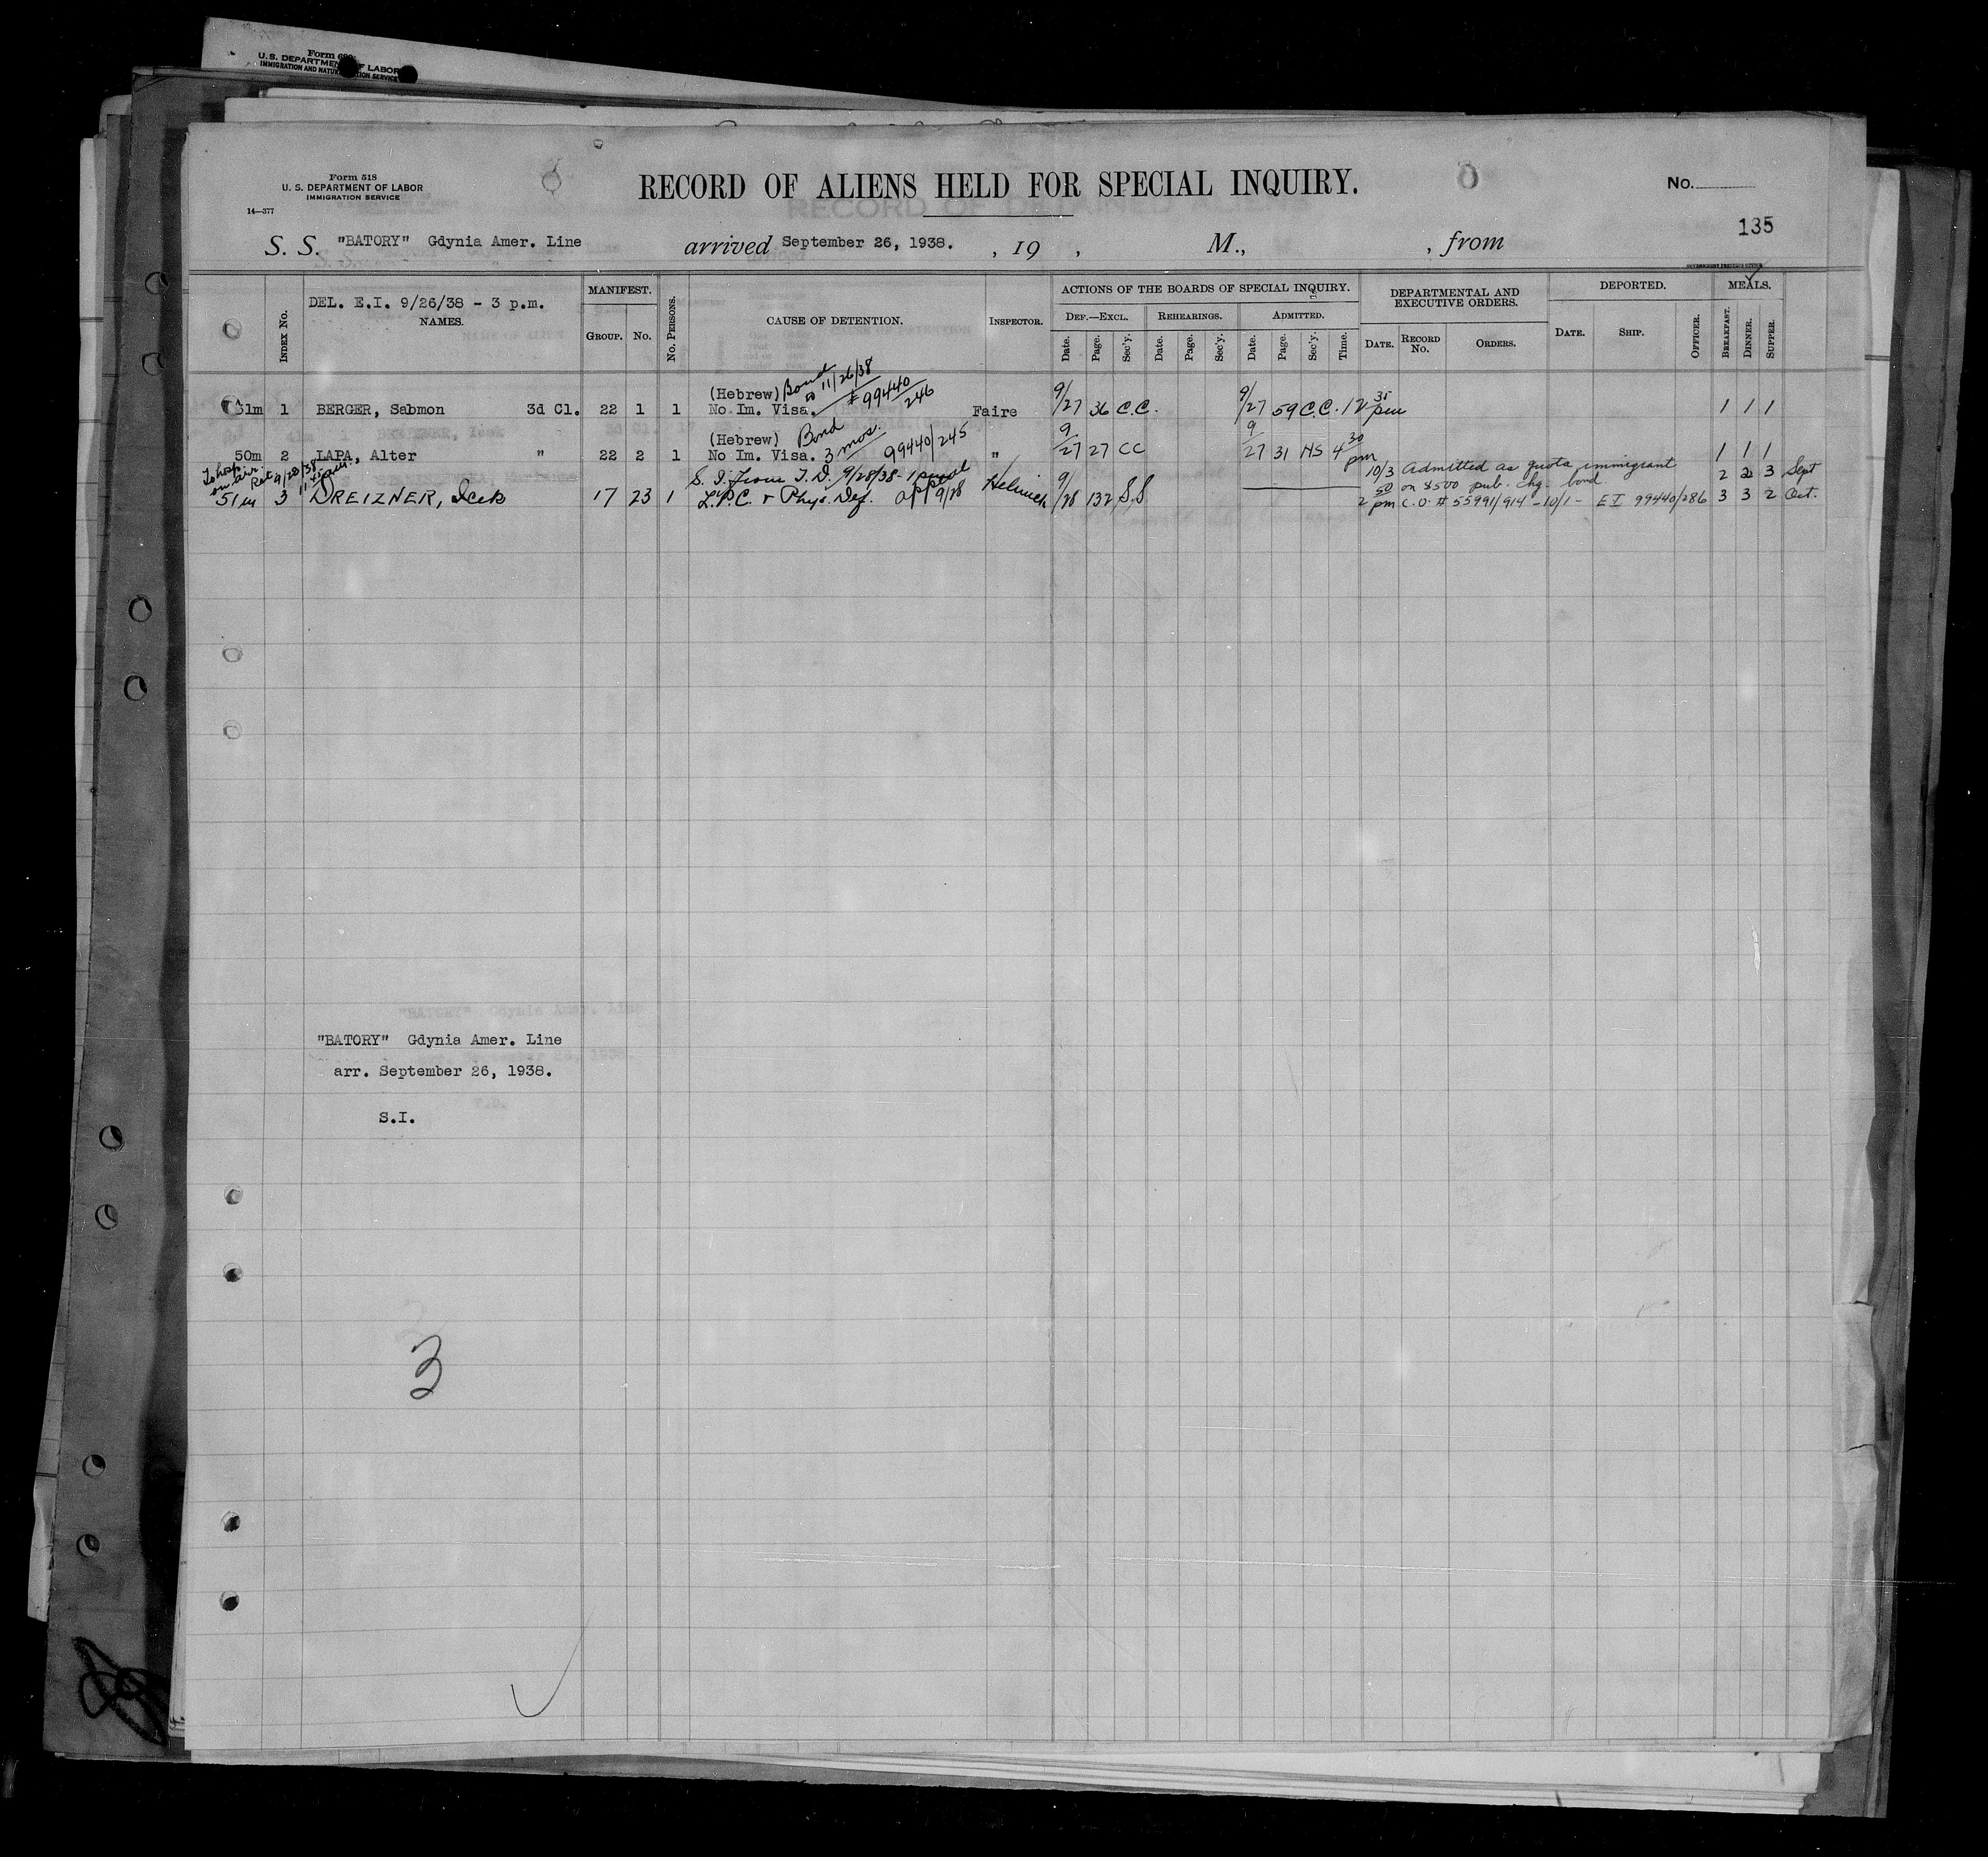 Form
U.S. DEPARTMENT OF LABOR
IMMIGRATION AND NATURALIZATION SERVICE
Form 518
U. S. DEPARTMENT OF LABOR
IMMIGRATION SERVICE
14—377
RECORD OF ALIENS HELD FOR SPECIAL INQUIRY.
No.
135
S. S. "BATORY" Gdynia Amer. Line arrived September 26, 1938. , 19 , M., , from
DEL. E.I. 9/26/38 - 3 p.m.
INDEX No. NAMES. MANIFEST. GROUP. No. No. PERSONS. CAUSE OF DETENTION. INSPECTOR.
ACTIONS OF THE BOARDS OF SPECIAL INQUIRY.
DEF.—EXCL. Date. Page. Sec'y. REHEARINGS. Date. Page. Sec'y. ADMITTED. Date. Page. Sec'y. Time.
DEPARTMENTAL AND EXECUTIVE ORDERS. DATE. RECORD No. ORDERS.
DEPORTED. DATE. SHIP. OFFICER.
MEALS. BREAKFAST. DINNER. SUPPER.
(Hebrew) Bond to 11/26/38
31m 1 BERGER, Sabmon 3d Cl. 22 1 1 No Im. Visa. # 99440/246 Faire 9/27 36 C.C. 9/27 59 C.C. 12 35 pm 1 1 1
(Hebrew) Bond
50m 2 LAPA, Alter " 22 2 1 No Im. Visa. 3 mos. 99440/245 " 9/27 27 CC 9/27 31 HS 4 30 pm 1 1 1
To hosp. on arr. Ret 9/28/38
S. I. from T. D. 9/28/38 - 1 10/3 Admitted as quota immigrant 2 2 3 Sept
50 on $500 pub. chg. bond
51m 3 DREIZNER, Icek 17 23 1 L.P.C. & Phys. Def. app 9/28 9/28 132 S.S 2 pm C.O. # 55991/914 - 10/1 - EI 99440/286 3 3 2 Oct.
"BATORY" Gdynia Amer. Line
arr. September 26, 1938.
S.I.
3